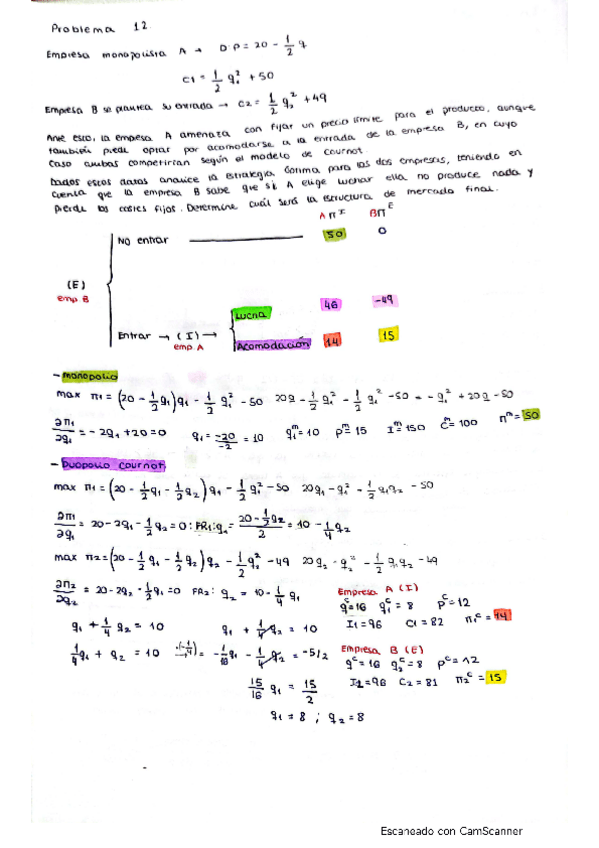 Problema 12
Empresa monopolista A → D P = 20 - 1/2 q
C1 = 1/2 q1² + 50
Empresa B se plantea su entrada → C2 = 1/2 q2² + 49
Ante esto, la empresa A amenaza con fijar un precio límite para el producto, aunque
también puede optar por acomodarse a la entrada de la empresa B, en cuyo
caso ambas competirían según el modelo de Cournot.
Dados estos datos analice la estrategia óptima para las dos empresas, teniendo en
cuenta que la empresa B sabe que si A elige luchar ella no produce nada y
pierde los costes fijos. Determine cuál será la estructura de mercado final.
A Π I B Π E
No entrar 50 0
(E)
emp B
Lucha 46 -49
Entrar → (I) →
emp A
Acomodación 14 15
- Monopolio
max π1 = (20 - 1/2 q1) q1 - 1/2 q1² - 50 20q - 1/2 q1² - 1/2 q1² - 50 = - q1² + 20q - 50
∂π1/∂q1 = - 2q1 + 20 = 0 q1 = -20/-2 = 10 q1^m = 10 P^m = 15 I^m = 150 C^m = 100 π^m = 50
- Duopolio Cournot
max π1 = (20 - 1/2 q1 - 1/2 q2) q1 - 1/2 q1² - 50 20q1 - q1² - 1/2 q1q2 - 50
∂π1/∂q1 = 20 - 2q1 - 1/2 q2 = 0 : FR1: q1 = (20 - 1/2 q2)/2 = 10 - 1/4 q2
max π2 = (20 - 1/2 q1 - 1/2 q2) q2 - 1/2 q2² - 49 20q2 - q2² - 1/2 q1q2 - 49
∂π2/∂q2 = 20 - 2q2 - 1/2 q1 = 0 FR2: q2 = 10 - 1/4 q1
Empresa A (I)
q^c = 16 q1^c = 8 P^c = 12
I1 = 96 C1 = 82 π1^c = 14
q1 + 1/4 q2 = 10 q1 + 1/4 q2 = 10
Empresa B (E)
1/4 q1 + q2 = 10 (·(-1/4)) = - 1/16 q1 - 1/4 q2 = -5/2
q^c = 16 q2^c = 8 P^c = 12
I2 = 96 C2 = 81 π2^c = 15
15/16 q1 = 15/2
q1 = 8 ; q2 = 8
Escaneado con CamScanner